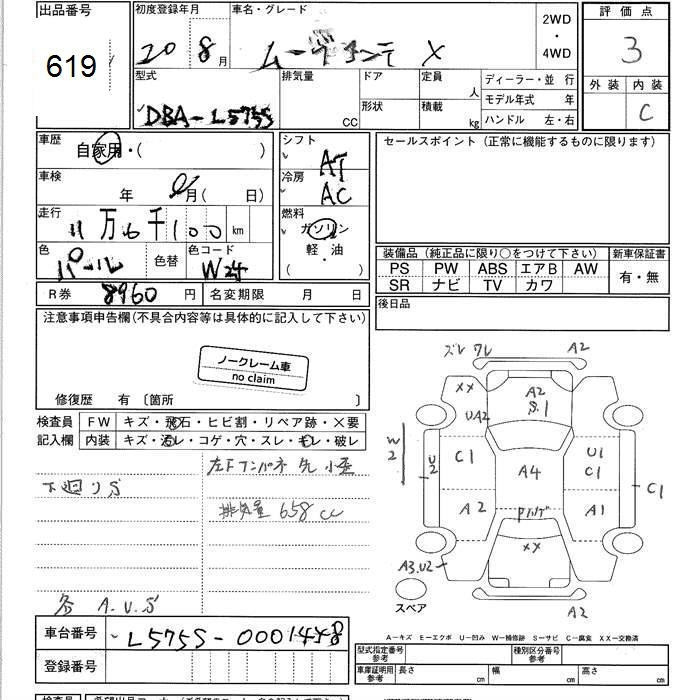 出品番号
619
初度登録年月
20 8月
車名・グレード
ムーヴコンテ X
2WD
・
4WD
評価点
3
外装 内装
C
型式
DBA-L575S
排気量
CC
ドア
形状
定員
人
積載
kg
ディーラー・並 行
モデル年式 年
ハンドル 左・右
車歴
自家用・( )
シフト
AT
冷房
AC
車検
年 月( 日)
走行
11万6千100km
燃料
ガソリン
軽・油
( ・ )
色
パール
色替
色コード
W24
R券 8960円
名変期限 月 日
セールスポイント(正常に機能するものに限ります)
装備品(純正品に限り○をつけて下さい)
PS PW ABS エアB AW
SR ナビ TV カワ
新車保証書
有・無
後日品
注意事項申告欄(不具合内容等は具体的に記入して下さい)
ノークレーム車
no claim
修復歴 有〔箇所 〕
検査員
記入欄
FW キズ・飛石・ヒビ割・リペア跡・✕要
内装 キズ・汚レ・コゲ・穴・スレ・キレ・破レ
下廻りS
排気量 658cc
各 A.U.S
ズレ ワレ
A2
XX
A2
S.1
UA2
W2
U2
C1
A4
U1
C1
C1
A2
A1
XX
A3.U2
A2
スペア
A-キズ E-エクボ U-凹み W-補修跡 S-サビ C-腐食 XX-交換済
車台番号
L575S-0001448
登録番号
型式指定番号
参考
種別区分番号
参考
車庫証明用
参考
長さ cm
幅 cm
高さ cm